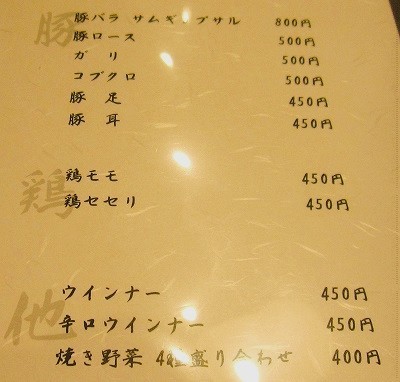 豚
豚バラ サムギョプサル 800円
豚ロース 500円
ガリ 500円
コブクロ 500円
豚足 450円
豚耳 450円
鶏
鶏モモ 450円
鶏セセリ 450円
他
ウインナー 450円
辛口ウインナー 450円
焼き野菜 4種盛り合わせ 400円